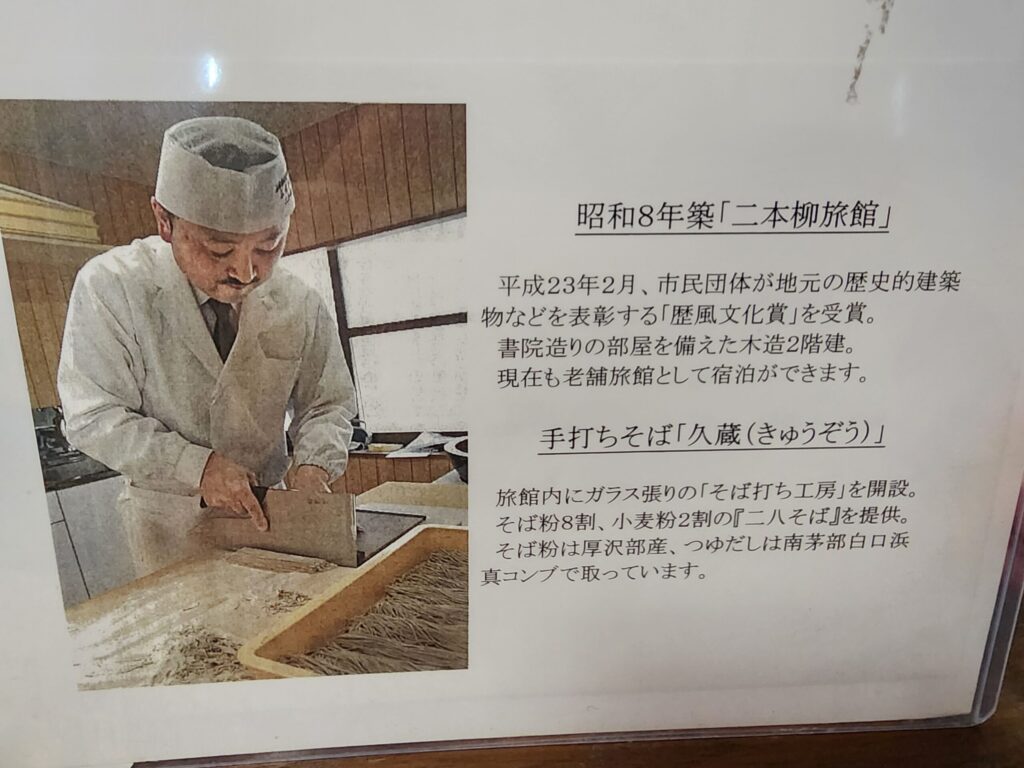 昭和8年築「二本柳旅館」
平成23年2月、市民団体が地元の歴史的建築
物などを表彰する「歴風文化賞」を受賞。
書院造りの部屋を備えた木造2階建。
現在も老舗旅館として宿泊ができます。
手打ちそば「久蔵(きゅうぞう)」
旅館内にガラス張りの「そば打ち工房」を開設。
そば粉8割、小麦粉2割の『二八そば』を提供。
そば粉は厚沢部産、つゆだしは南茅部白口浜
真コンブで取っています。